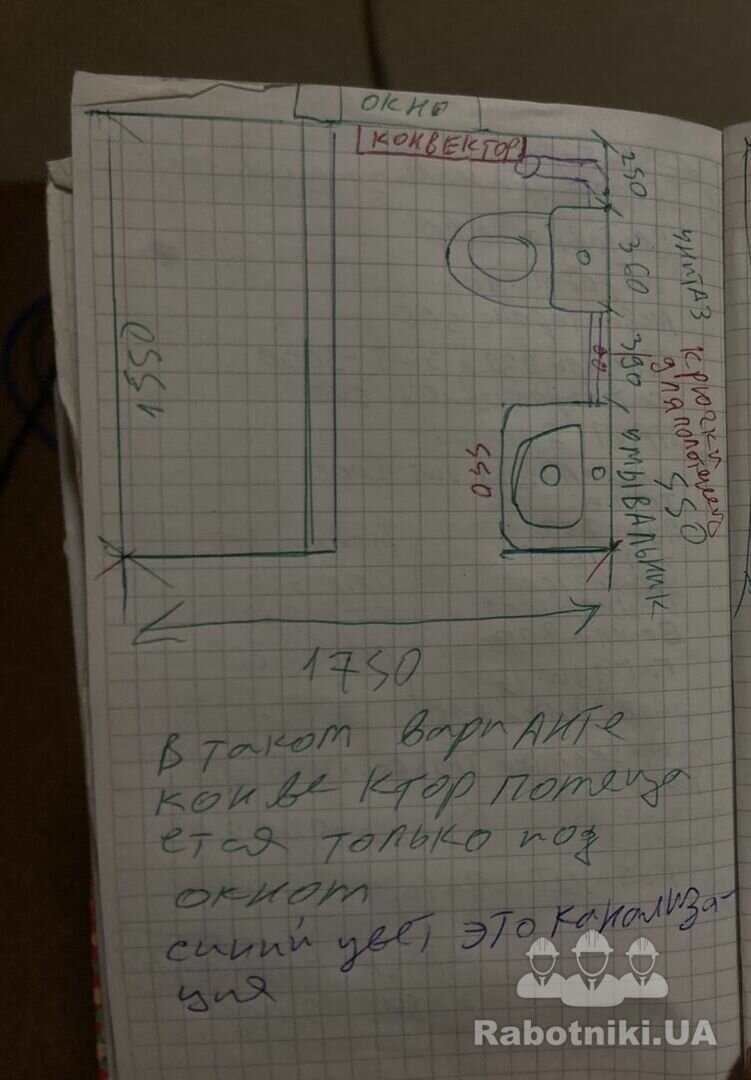 окно
конвектор
250
унитаз
360
крючки
для полотенец
390
550
умывальник
550
1550
1750
в таком варианте
конвектор помеща
ется только под
окном
синий цвет, это канализа-
ция
Rabotniki.UA